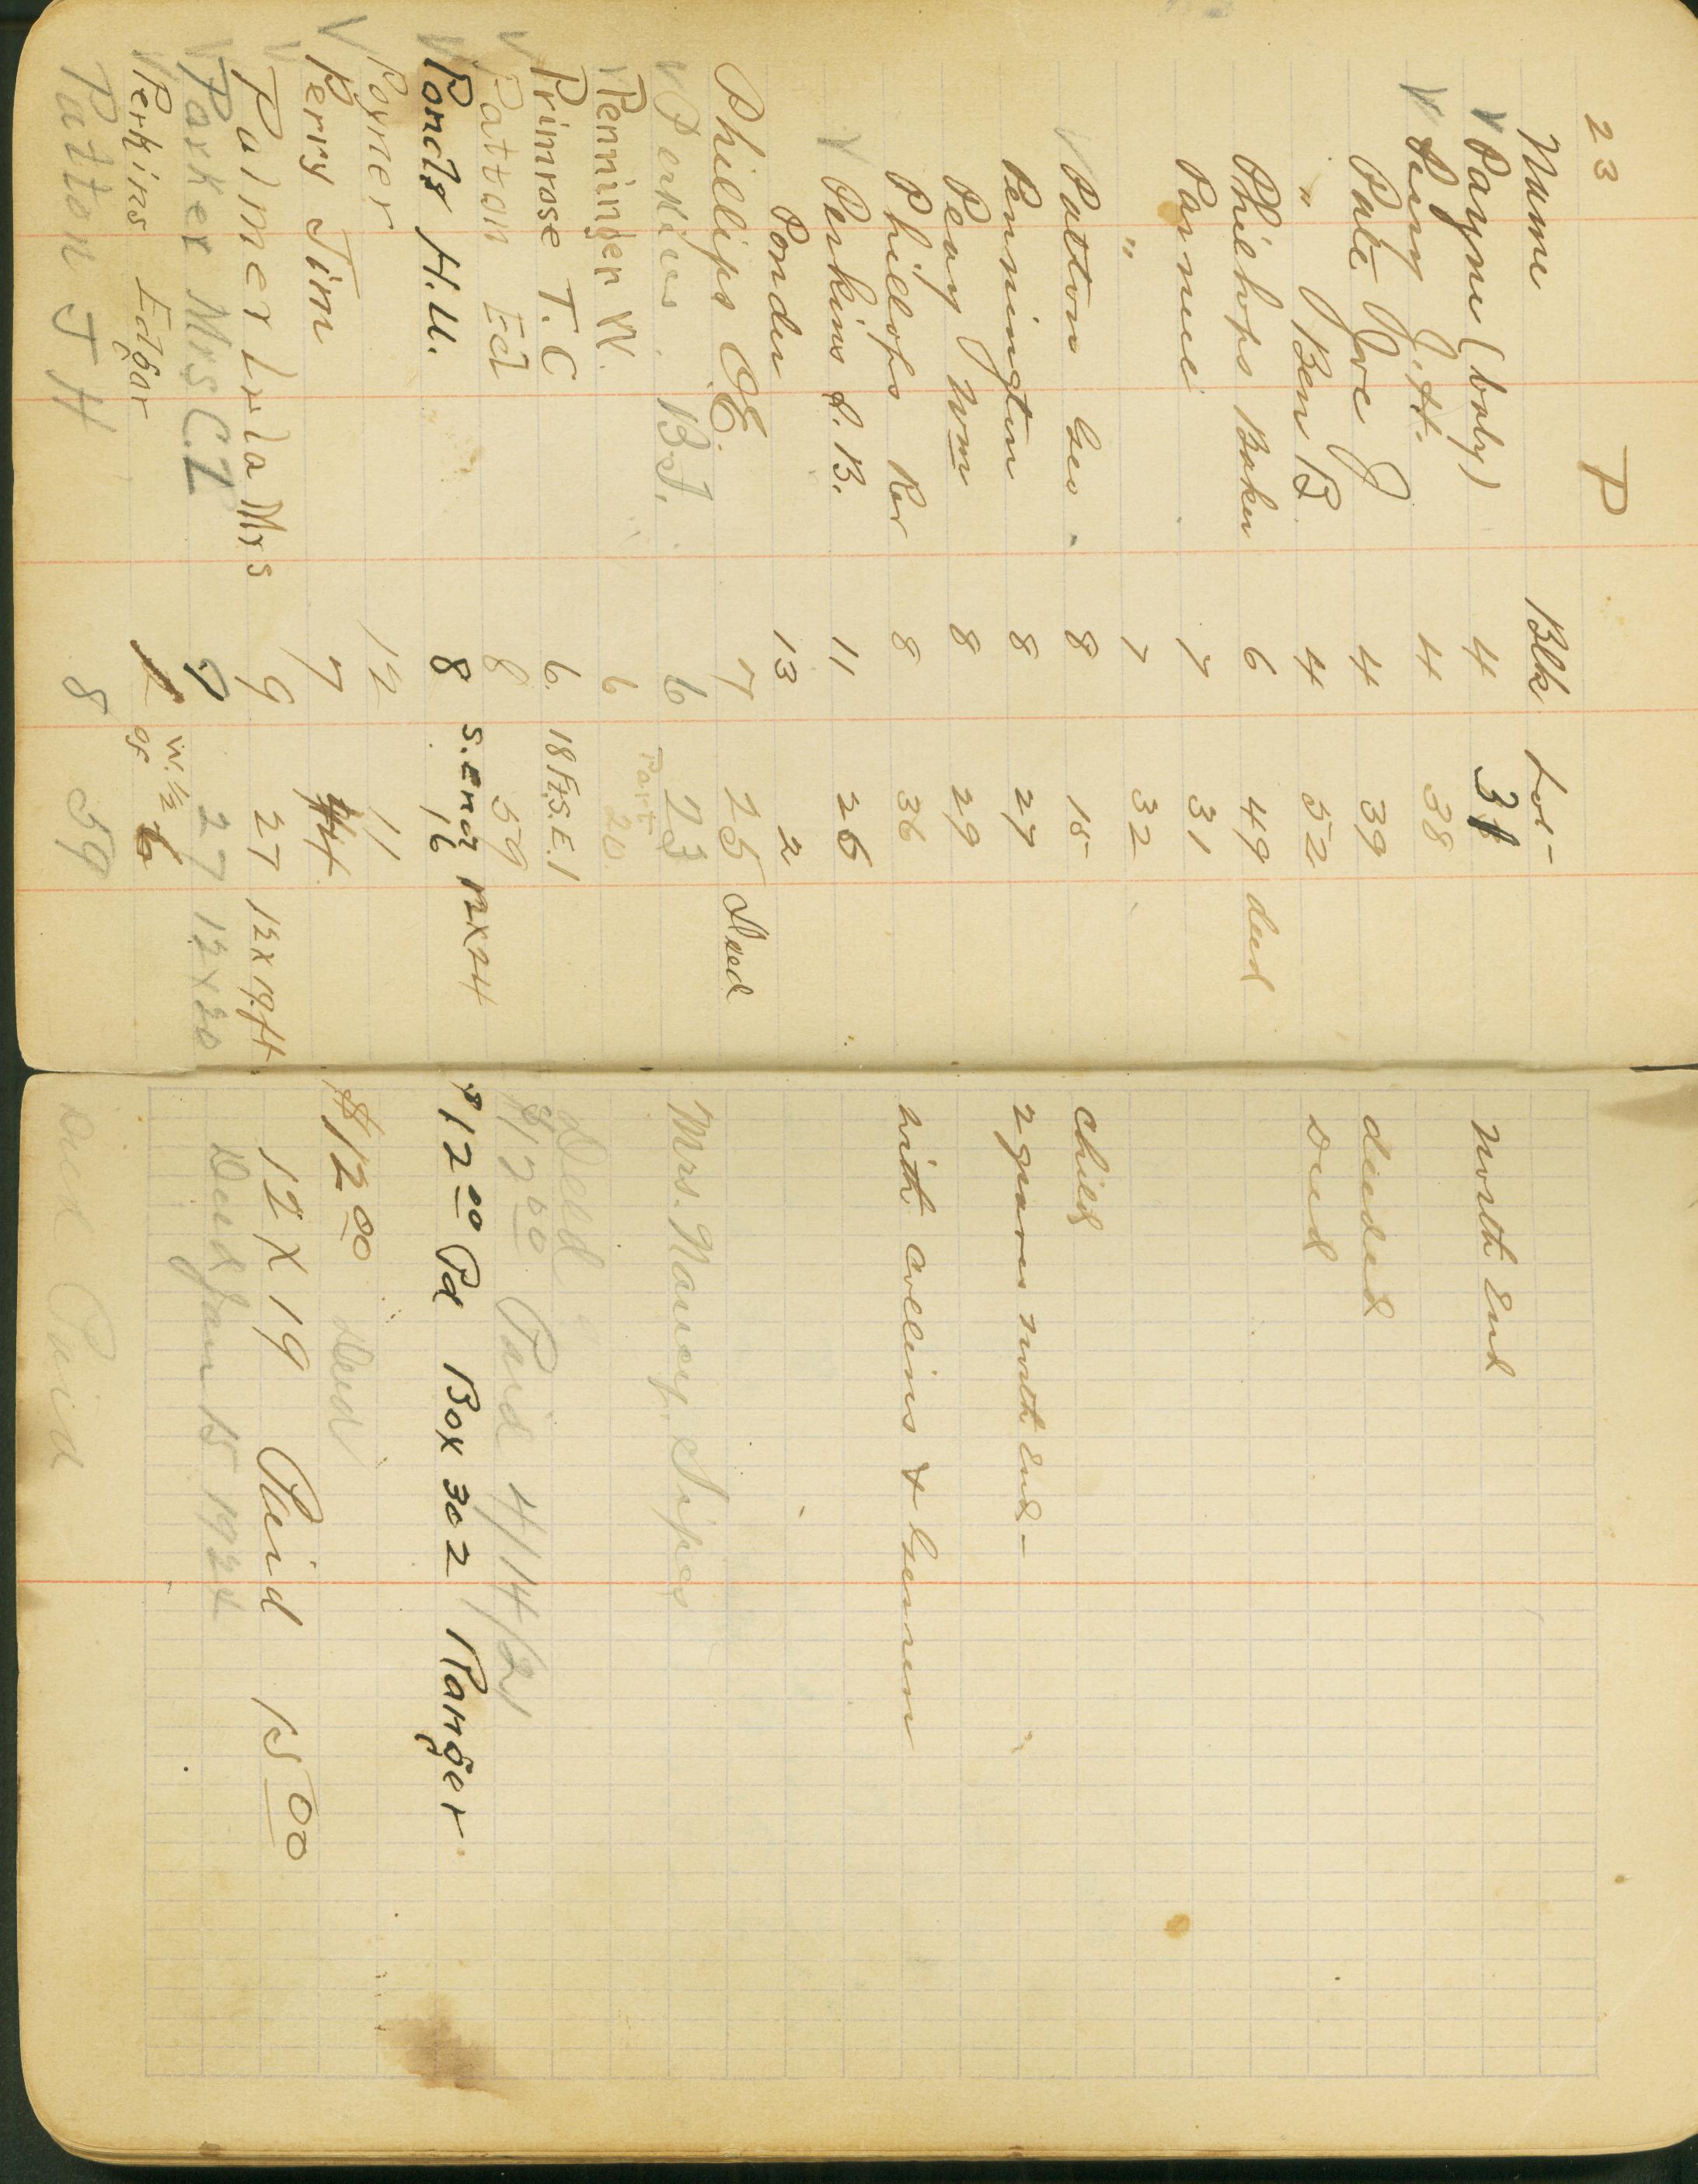 23 P
Name Blk Lot
√ Payne (baby) 4 31 North End
√ Perry J. H. 4 38
Pate Joe J 4 39 deeded
" J Ben B 4 52 Deed
Philhops Baker 6 49 deed
Parnee 7 31
" 7 32
√ Patton Geo. 8 15 child
Pennington 8 27 2 graves north End-
Peay Wm 8 29
Phillops Rer 8 36 with collins &
√ Perkins S. B. 11 26
Ponder 13 2
Phillips O.E. 7 25 Deed
√ Perkins B.J. 6 23 Mrs. Nancy Sipes
√ Penninger W. 6 Part 20
Primrose T. C 6. 18 Ft S.E. 1 Deed
√ Patton Ed 8 59 $12 00 Paid 4/14/21
√ Ponds H.U. 8 S. End 16 12X24 $12 00 Pd Box 302 Ranger
√ Poyner 12 11
√ Perry Jim 7 44 $12 00 Deed
√ Palmer Lula Mrs 9 27 12 x 19 ft 12 X 19 Paid 15 00
√ Parker Mrs C.L 9 27 12 X 20 Deed Jan 15 1924
√ Perkins Edgar W. 1/2 of 6
Patton J H 8 59 Deed Paid